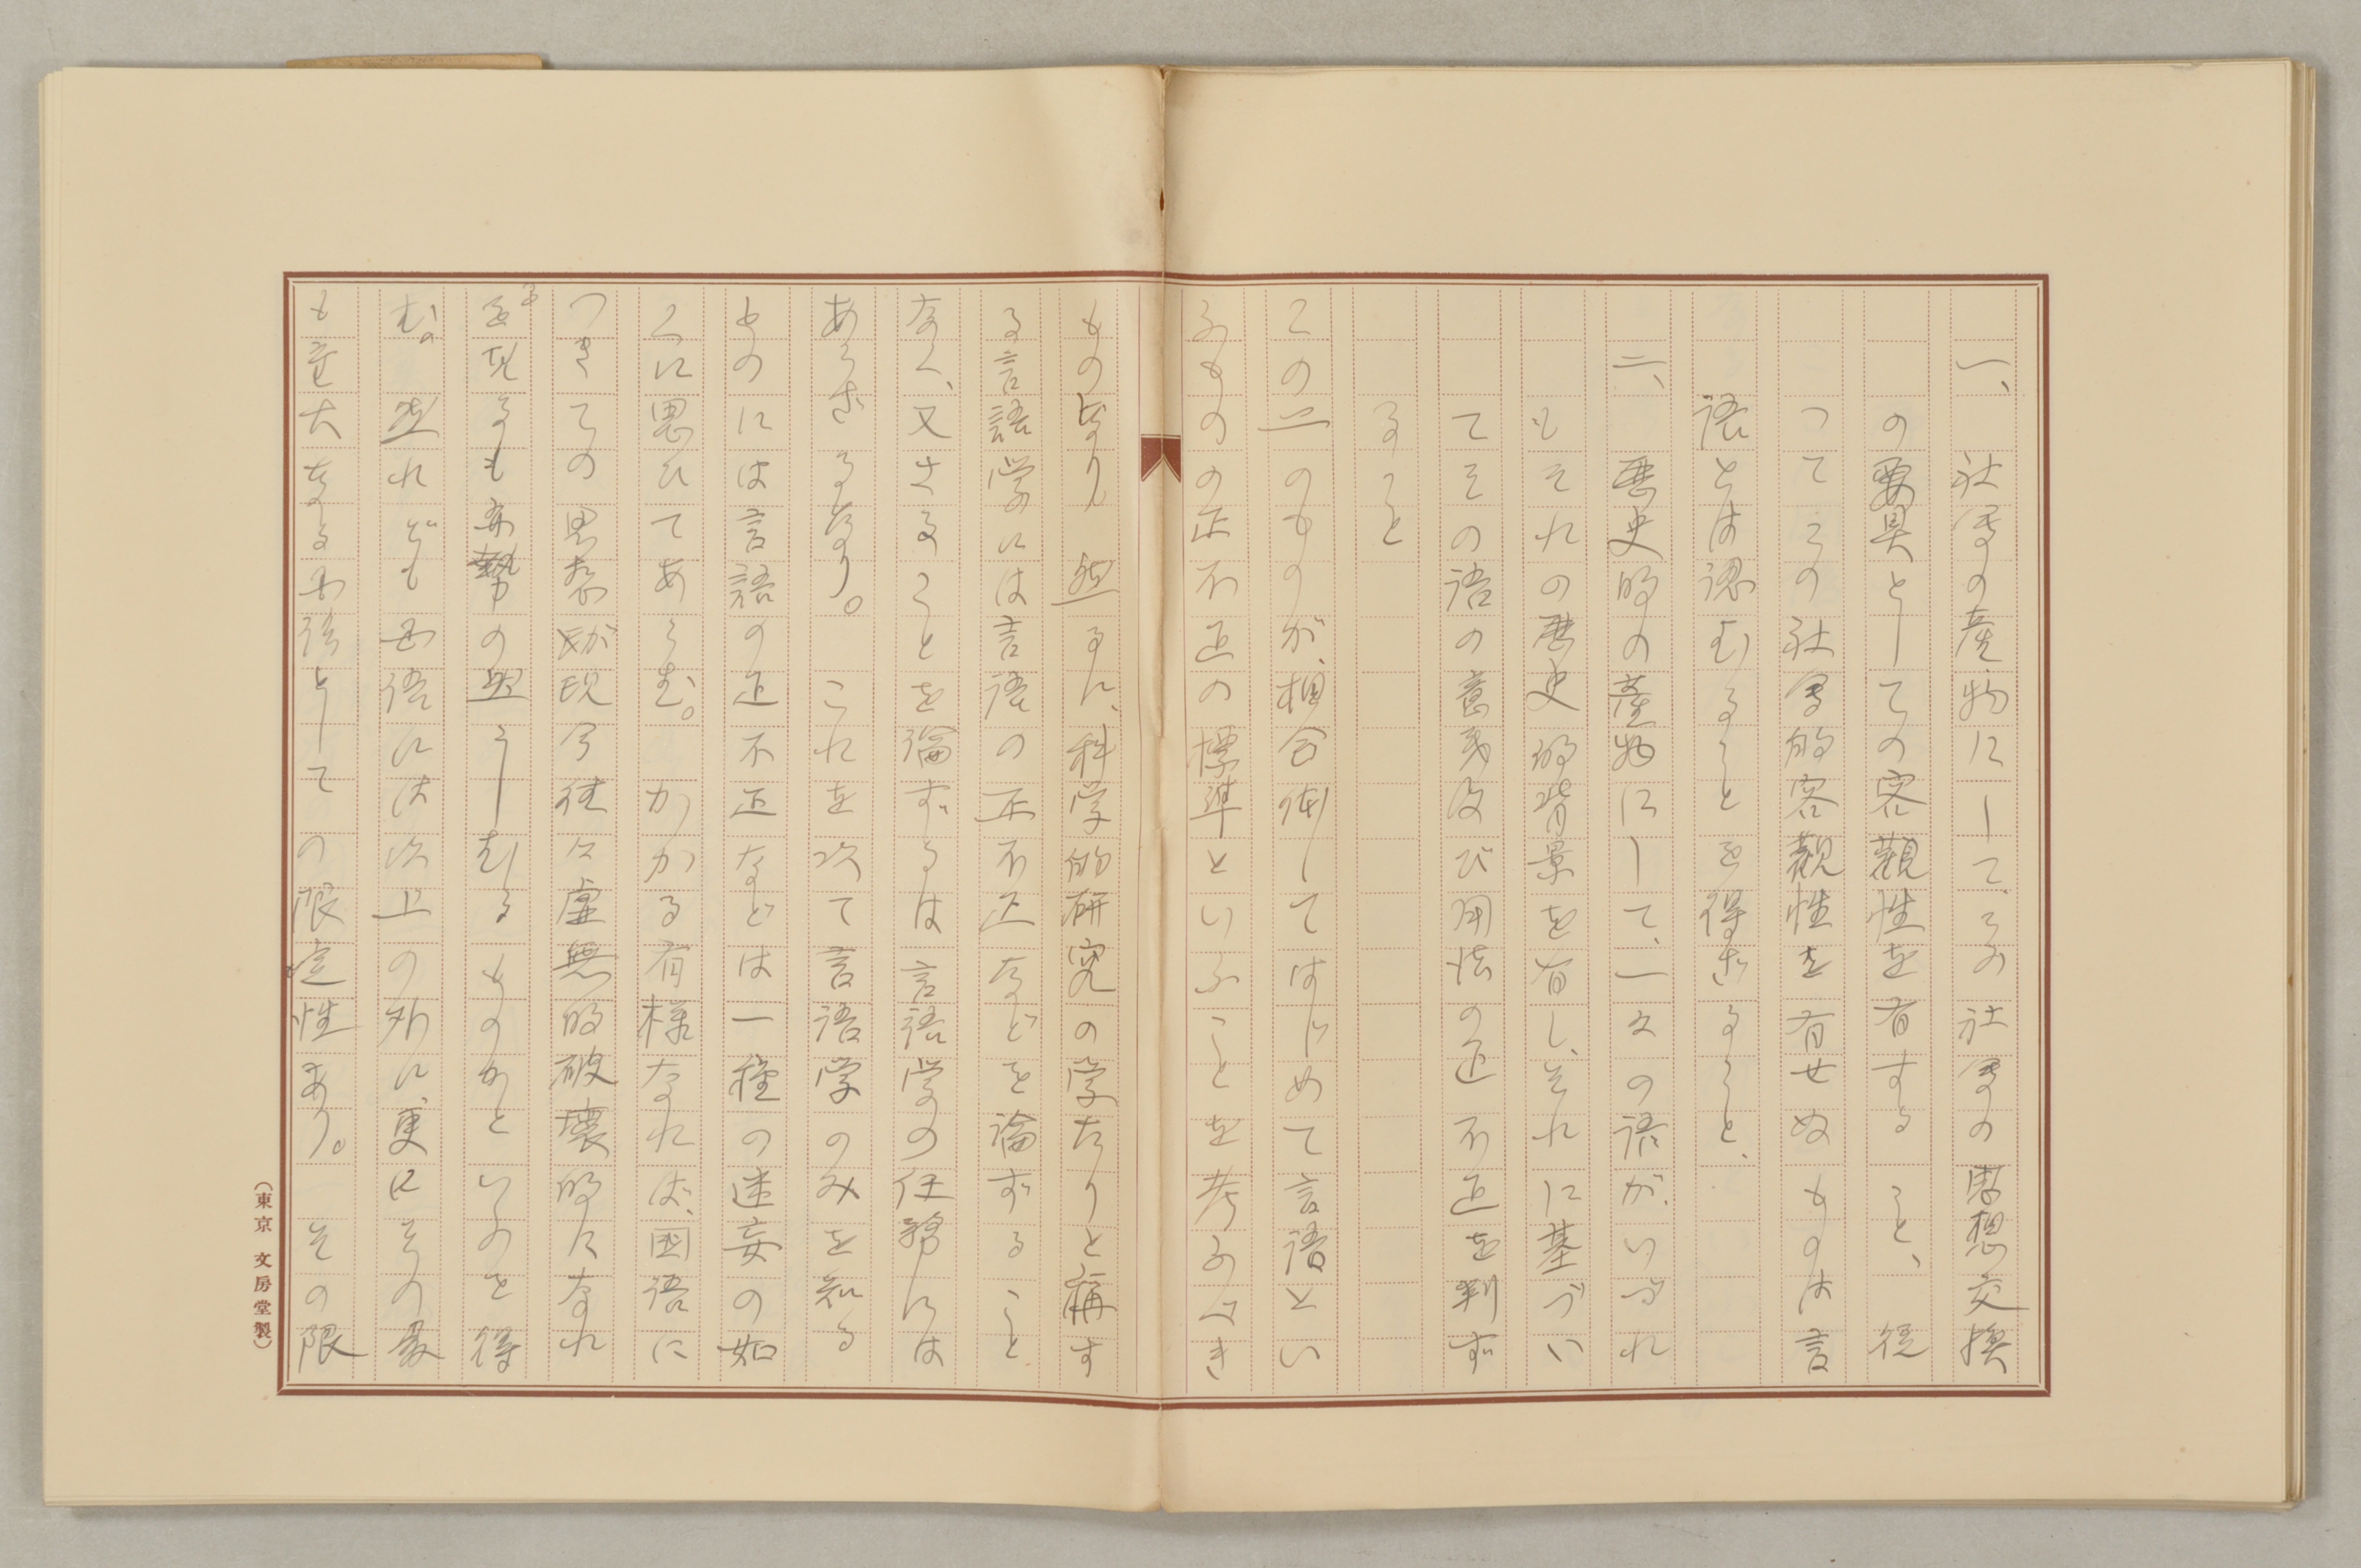 一、社会の産物にして、その社会の思想交換
の要具としての客観性を有すること、従
つてその社会的客観性を有せぬものは言
語とは認むることを得ざること、
二、歴史的の産物にして、一々の語が、いづれ
もそれの歴史的背景を有し、それに基づい
てその語の意義及び用法の正不正を判ず
ること
この二のものが、相合体してはじめて言語とい
ふものの正不正の標準といふことを考ふべき
ものなり 然るに、科学的研究の学たりと称す
る言語学には言語の正不正などを論ずること
なく、又さることを論ずるは言語学の任務には
あらざるなり。 これを以て言語学のみを知る
ものには言語の正不正などは一種の迷妄の如
くに思ひてあらむ。 かかる有様なれば、国語に
つきての思想が現今往々虚無的破壊的になれ
るを見るも亦勢の然らしむるものかといふを得
む。 然れども国語には以上の外に、更にその最
も重大なる国語としての限定性あり。 その限
（東京 文房堂製）